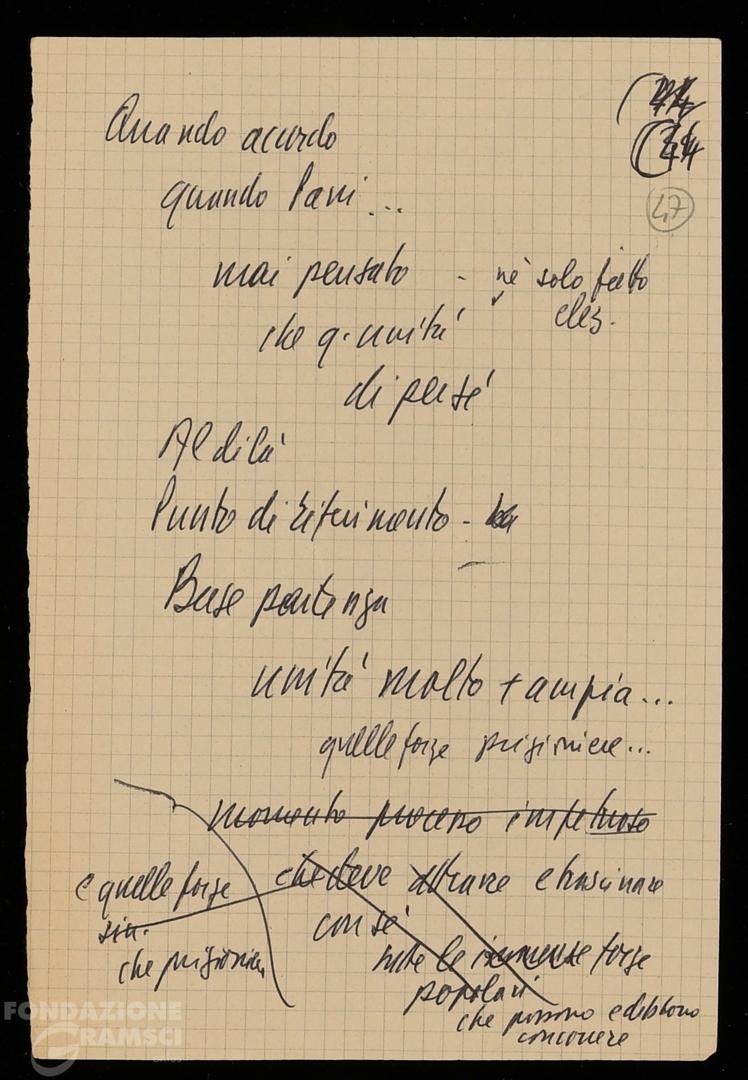 47
Quando accordo
quando Parri...
mai pensato - nè solo fatto
elez.
che q. unità
di per sé
Al di là
Punto di riferimento -
Base partenza
unità molto + ampia...
quelle forze prigioniere...
momento processo impetuoso
e quelle forze che deve attrarre e trascinare
sin. con sé
che prigioniere tutte le immense forze
popolari
che possono e debbono
concorrere
FONDAZIONE
GRAMSCI